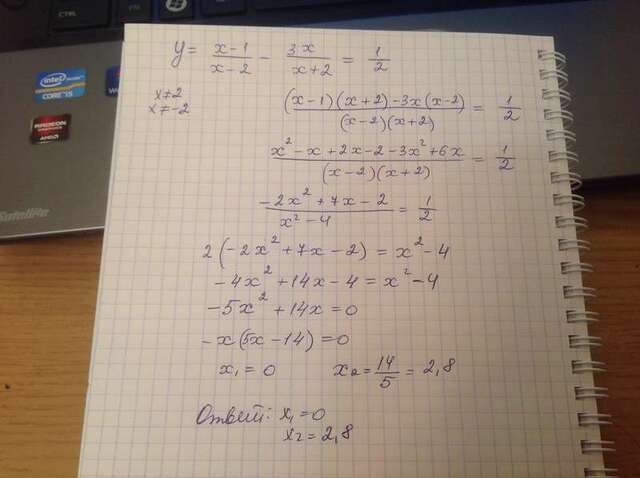 y = \frac{x-1}{x-2} - \frac{3x}{x+2} = \frac{1}{2}
x ≠ 2
x ≠ -2
\frac{(x-1)(x+2)-3x(x-2)}{(x-2)(x+2)} = \frac{1}{2}
\frac{x^2-x+2x-2-3x^2+6x}{(x-2)(x+2)} = \frac{1}{2}
\frac{-2x^2+7x-2}{x^2-4} = \frac{1}{2}
2(-2x^2+7x-2) = x^2-4
-4x^2+14x-4 = x^2-4
-5x^2+14x = 0
-x(5x-14) = 0
x_1 = 0 x_2 = \frac{14}{5} = 2,8
Ответ: x_1 = 0
x_2 = 2,8
intel
CORE i5
RADEON
GRAPHICS
AMD
Satellite